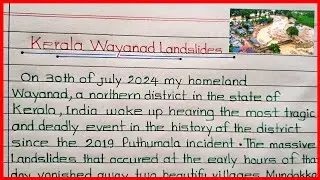 Kerala Wayanad Landslides
On 30th of July 2024 my homeland
Wayanad, a northern district in the state of
Kerala, India woke up hearing the most tragic
and deadly event in the history of the district
since the 2019 Puthumala incident. The massive
Landslides that occured at the early hours of that
day vanished away two beautiful villages Mundakkai